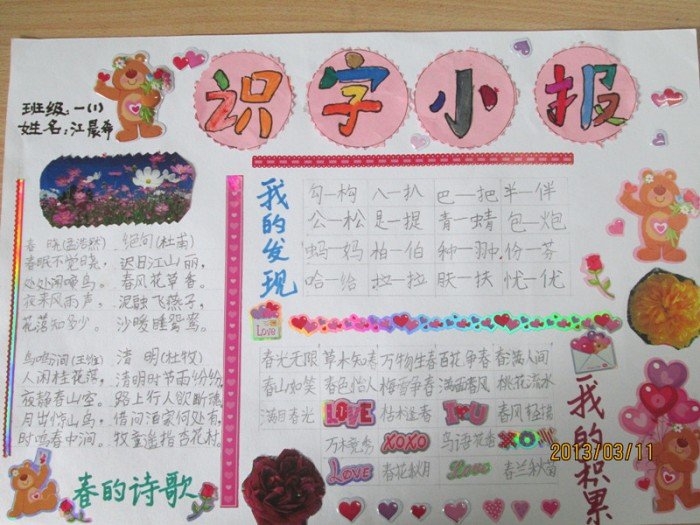 识字小报
班级:一(1)
姓名:江晨希
春晓(孟浩然)
春眠不觉晓,
处处闻啼鸟。
夜来风雨声,
花落知多少。
绝句(杜甫)
迟日江山丽,
春风花草香。
泥融飞燕子,
沙暖睡鸳鸯。
鸟鸣涧(王维)
人闲桂花落,
夜静春山空。
月出惊山鸟,
时鸣春中涧。
清明(杜牧)
清明时节雨纷纷,
路上行人欲断魂。
借问酒家何处有,
牧童遥指杏花村。
春的诗歌
我的发现
勾—构 八—扒 巴—把 半—伴
公—松 是—提 青—蜻 包—炮
蚂—妈 柏—伯 种— 份—芬
哈—给 肤—扶 忧—优
Love
春光无限 草木知春 万物生春 百花争春 春满人间
春山如笑 春色怡人 梅雪争春 满面春风 桃花流水
满目春光 LOVE 枯木逢春 I U 春风轻拂
万木竞秀 XOXO 鸟语花香 XOXO
Love 春花秋月 Love 春兰秋菊
我的积累
2013/03/11